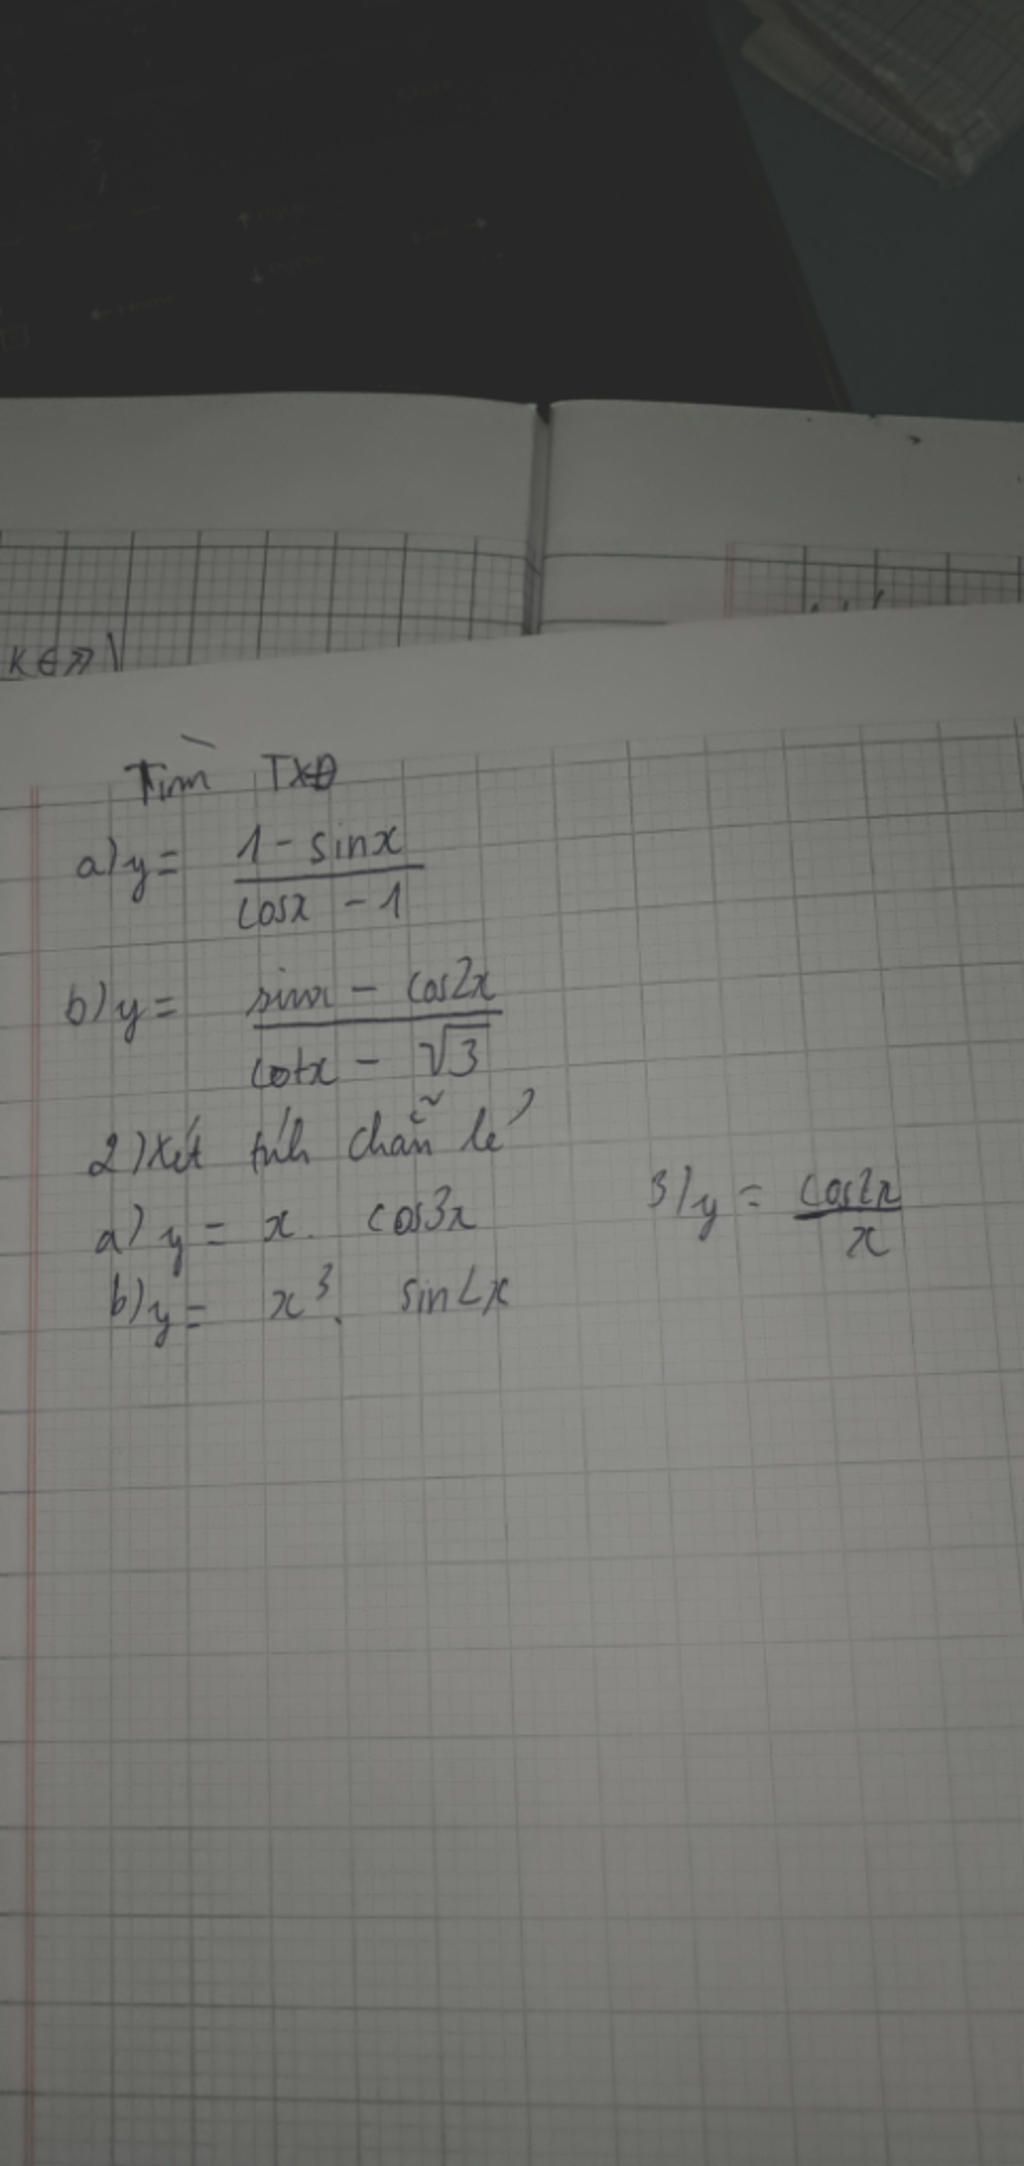 K∈Z
Tìm TXĐ
a) y = (1 - sinx)/(cosx - 1)
b) y = (sinx - cos2x)/(cotx - √3)
2) Xét tính chẵn lẻ
a) y = x. cos3x
3/ y = cos2x/x
b) y = x³. sin2x